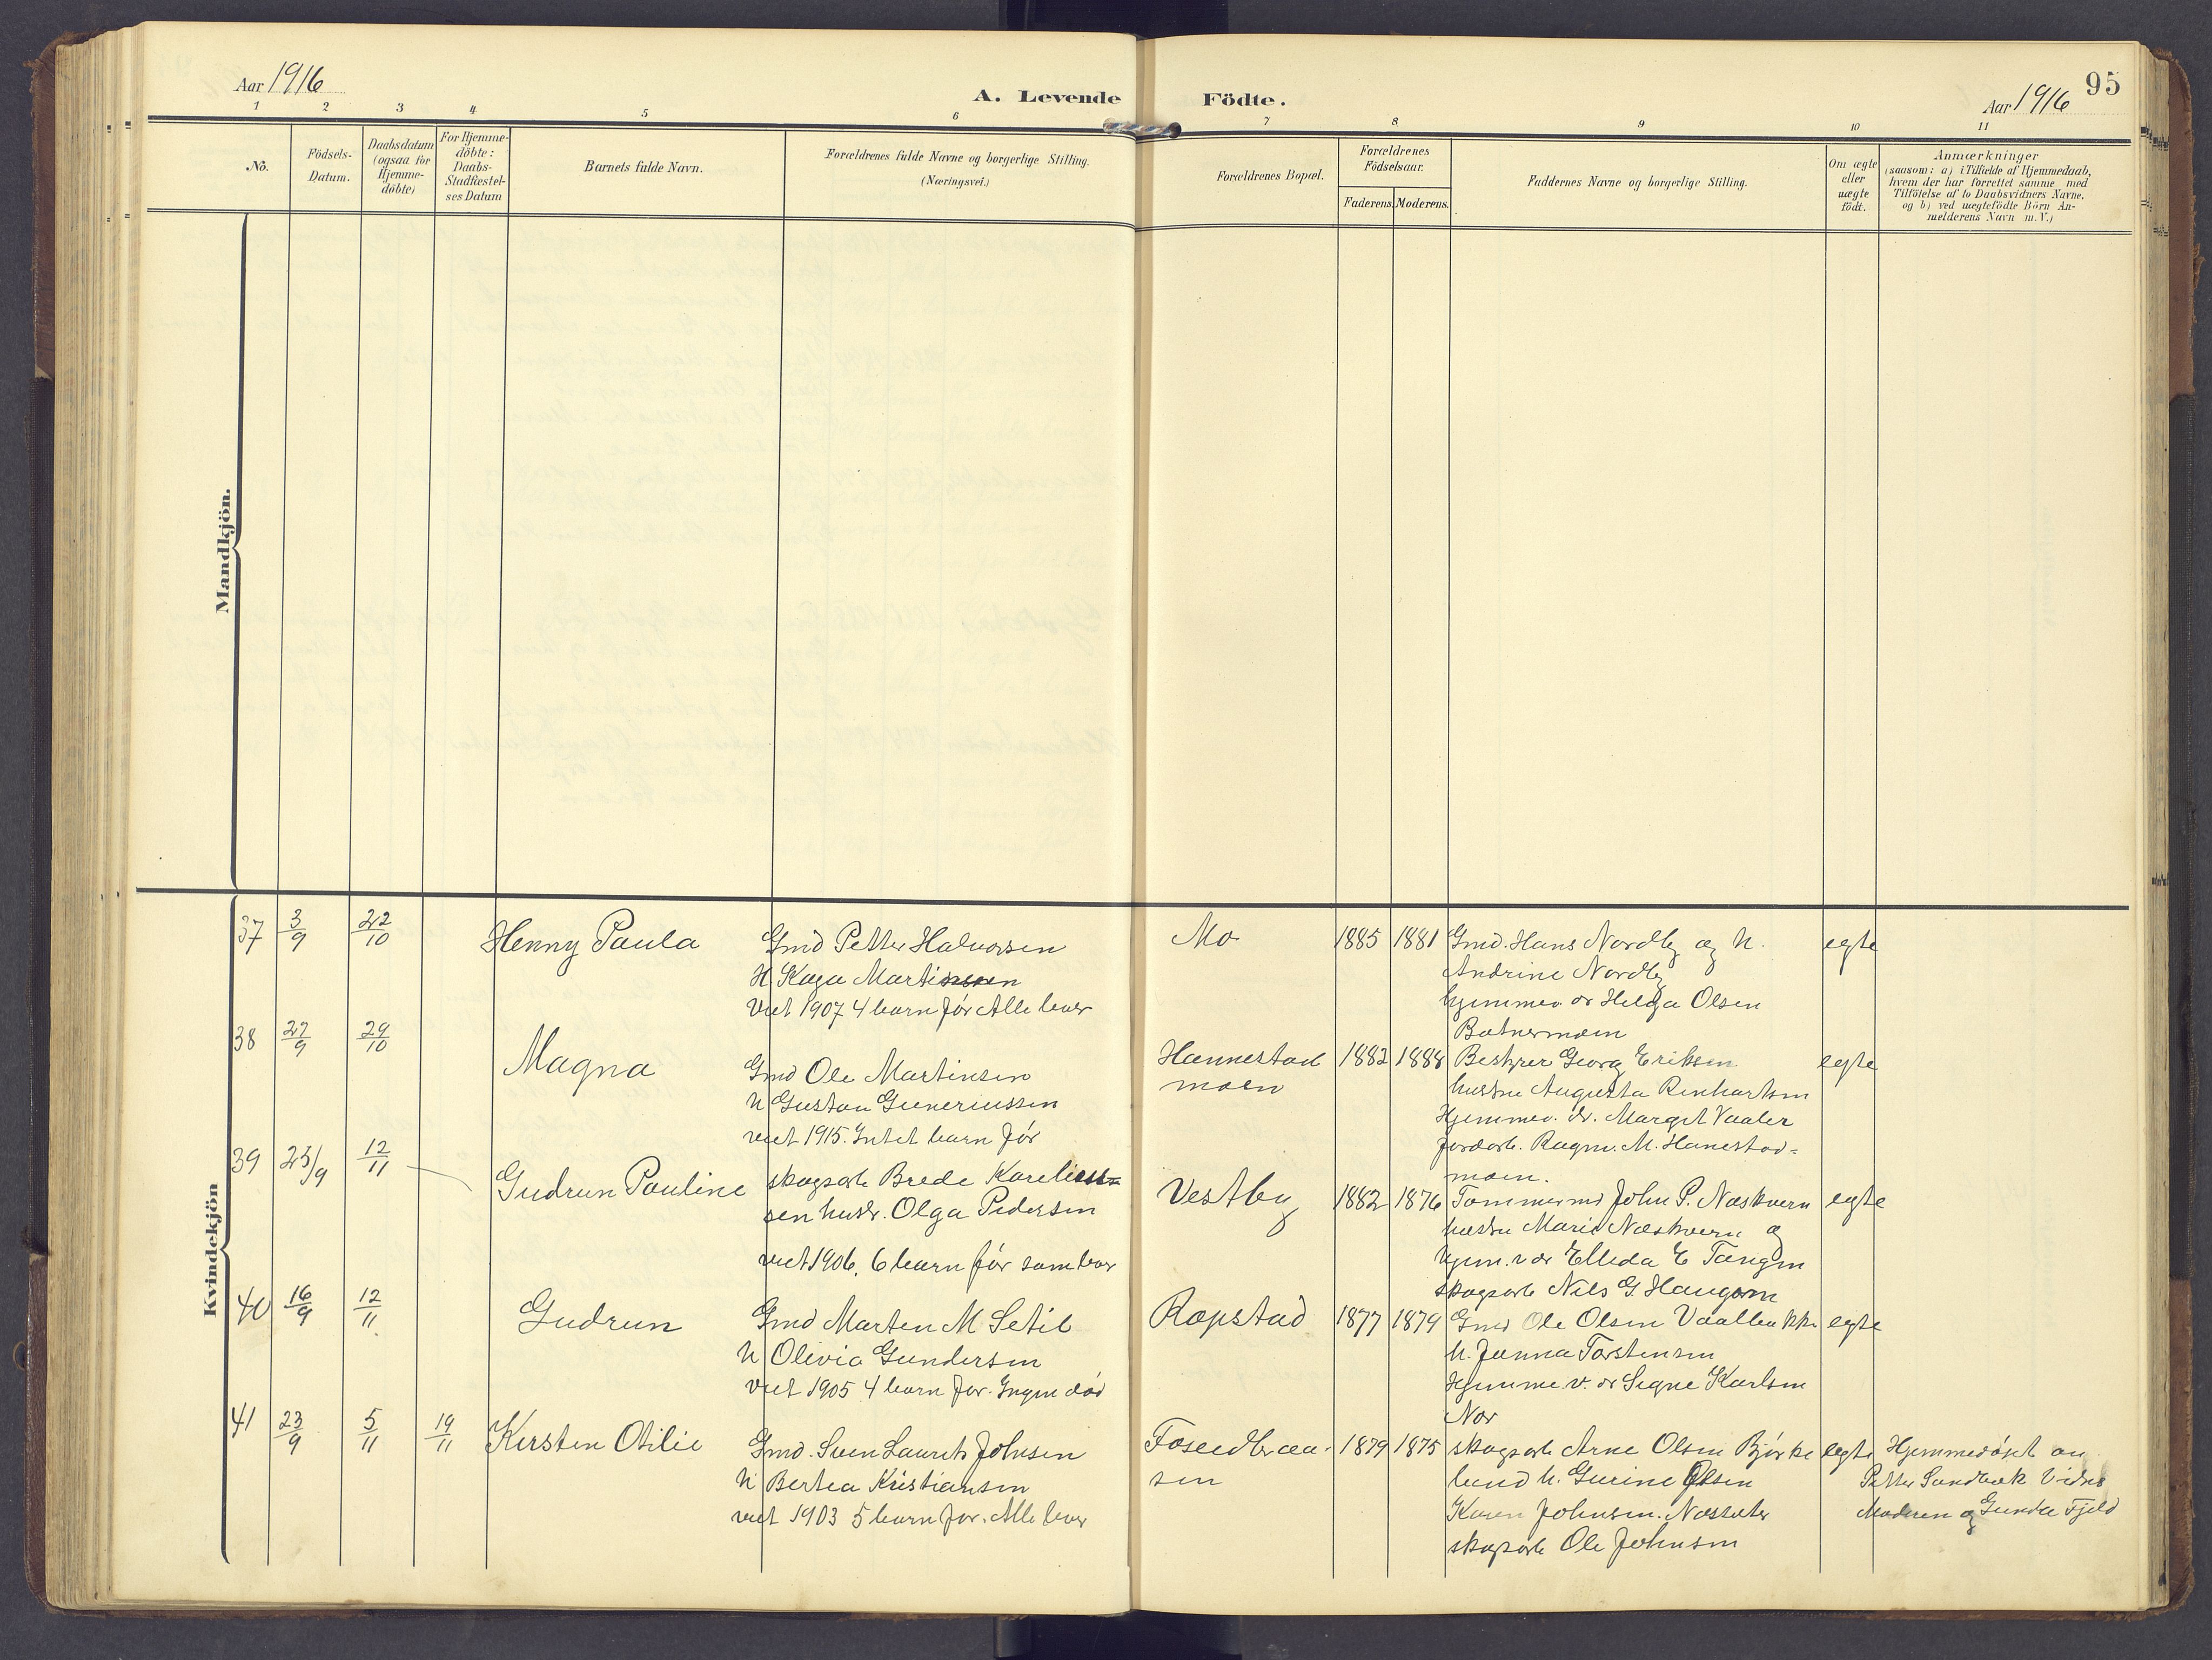 Aar 1916
A. Levende Födte.
Aar 1916
95
1 2 3 4 5 6 7 8 9 10 11
No.
Födsels-
Datum.
Daabsdatum
(ogsaa for
Hjemme-
döbte)
For Hjemme-
döbte:
Daabs-
Stadfæstel-
ses Datum
Barnets fulde Navn.
Forældrenes fulde Navne og borgerlige Stilling.
(Næringsvei.)
Forældrenes Bopæl.
Forældrenes
Födselsaar.
Faderens. Moderens.
Faddernes Navne og borgerlige Stilling.
Om ægte
eller
uægte
födt.
Anmærkninger
(saasom: a) i Tilfælde af Hjemmedaab,
hvem der har forrettet samme med
Tilföielse af to Daabsvidners Navne.
og b) ved uægtefödte Börn An-
melderens Navn m.V.)
Mandkjön.
Kvindekjön
37
3/9
22/10
Henny Paula
Gmd Petter Halvorsen
H Kaga Martinsen
Viet 1907 4 barn før Alle lever
Mo
1885
1881
Gmd. Hans Nordby og h.
Andrine Nordby
hjemmev dr Helga Olsen
egte
38
27/9
29/10
Magna
Gmd Ole Martinsen
h Gustava Guneriussen
viet 1915. Intet barn før
Hannestad
moen
1882
1888
Bestyrer Georg Eriksen
hustru Augusta Rinhartsen
Hjemmev. dr. Margit Vaaler
jordarb. Ragnv. M. Hanestad-
moen.
egte
39
23/9
12/11
Gudrun Pauline
skogsarb Brede Karelius-
sen hustr. Olga Pedersen
viet 1906. 6 barn før som lever
Vestby
1882
1876
Tømmermd John P. Næskvern
hustru Marie Næskvern og
hjem. v dr Ellida E Tangen
skogsarb Nils G. Haugoren
egte
40
16/9
12/11
Gudrun
Gmd Marten M Setil
h Olivia Gundersen
viet 1905 4 barn før. Ingen død
Ropstad
1877
1879
Gmd Ole Olsen Vaalbakke
h. Janna Torstensen
Hjemme v. dr Signe Karlsen
Nor
egte
41
23/9
5/11
19/11
Kirsten Otilie
Gmd. Sven Laurits Johnsen
h Bertea Kristiansen
viet 1903 5 barn før. Alle lever
sen
1879
1875
skogsarb Arne Olsen Bjørke
lund h. Gurine Olsen
Karen Johnsen. Næssæter
skogsarb Ole Johnsen
egte
Hjemmedøpt av
Petter Sandbæk Vidne
Moderen og Gunda Fjeld